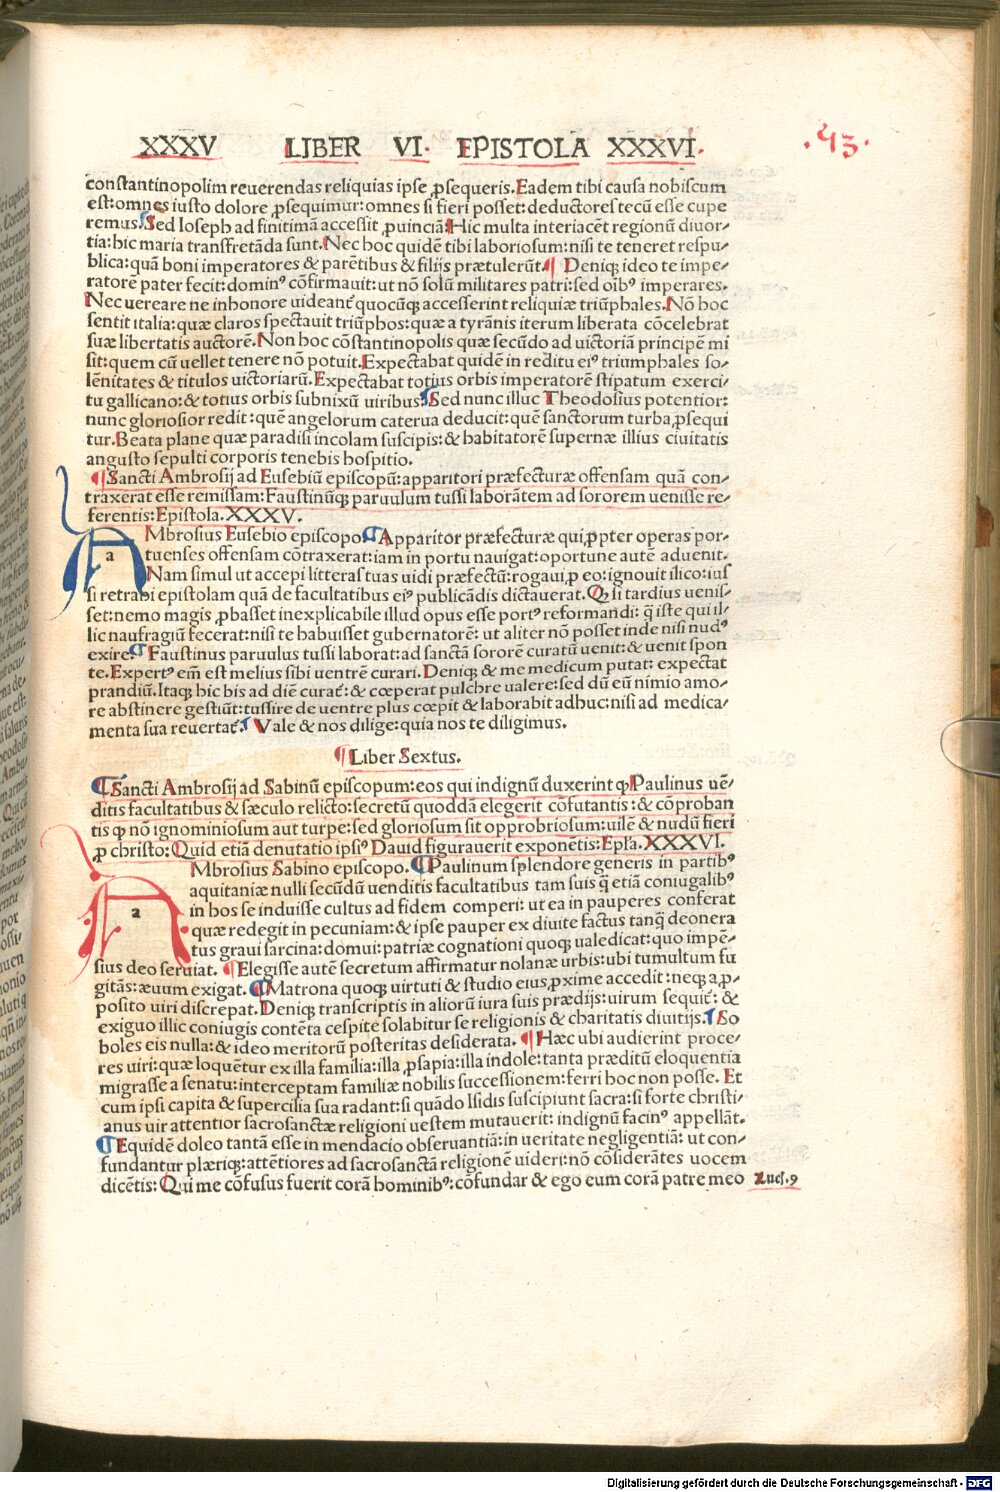 XXXV LIBER VI. EPISTOLA XXXVI. .43.
constantinopolim reuerendas reliquias ipse ꝓsequeris. Eadem tibi causa nobiscum
est: omnes iusto dolore ꝓsequimur: omnes si fieri posset: deductores tecū esse cupe
remus. Sed Ioseph ad finitimā accessit ꝓuinciā: Hic multa interiacēt regionū diuor-
tia: hic maria transfretāda sunt. Nec hoc quidē tibi laboriosum: nisi te teneret respu-
blica: quā boni imperatores & parētibus & filiis prætulerūt. ¶ Deniqꝫ ideo te impe-
ratorē pater fecit: dominꝰ cōfirmauit: ut nō solū militares patri: sed oibꝰ imperares.
Nec uereare ne inhonore uideant᷑ quocūqꝫ accesserint reliquiæ triūphales. Nō hoc
sentit italia: quæ claros spectauit triūphos: quæ a tyrānis iterum liberata cōcelebrat
suæ libertatis auctorē. Non hoc cōstantinopolis quæ secūdo ad uictoriā principē mi
sit: quem cū uellet tenere nō potuit. Expectabat quidē in reditu eiꝰ triumphales so-
lēnitates & titulos uictoriarū. Expectabat totius orbis imperatorē stipatum exerci-
tu gallicano: & totius orbis subnixū uiribus: ¶ Sed nunc illuc Theodosius potentior:
nunc gloriosior redit: quē angelorum caterua deducit: quē sanctorum turba ꝓsequi
tur. Beata plane quæ paradisi incolam suscipis: & habitatorē supernæ illius ciuitatis
angusto sepulti corporis tenebis hospitio.
¶ Sancti Ambrosij ad Eusebiū episcopū: apparitori præfecturæ offensam quā con-
traxerat esse remissam: Faustinūqꝫ paruulum tussi laborātem ad sororem uenisse re-
ferentis: Epistola. XXXV.
a Mbrosius Eusebio episcopo. ¶ Apparitor præfecturæ qui ꝓpter operas por-
tuenses offensam cōtraxerat: iam in portu nauigat: oportune autē aduenit.
Nam simul ut accepi litteras tuas uidi præfectū: rogaui ꝓ eo: ignouit ilico: ius
si retrahi epistolam quā de facultatibus eiꝰ publicādis dictauerat. Qꝫ si tardius uenis-
set: nemo magis ꝓbasset inexplicabile illud opus esse portꝰ reformandi: q̄ iste qui il-
lic naufragiū fecerat: nisi te habuisset gubernatorē: ut aliter nō posset inde nisi nudꝰ
exire. ¶ Faustinus paruulus tussi laborat: ad sanctā sororē curatū uenit: & uenit spon
te. Expertꝰ em̄ est melius sibi uentrē curari. Deniqꝫ & me medicum putat: expectat
prandiū. Itaqꝫ hic bis ad diē curat᷑: & cœperat pulchre ualere: sed dū eū nimio amo-
re abstinere gestiūt: tussire de uentre plus cœpit & laborabit adhuc: nisi ad medica-
menta sua reuertat᷑. ¶ Vale & nos dilige: quia nos te diligimus.
¶ Liber Sextus.
¶ Sancti Ambrosij ad Sabinū episcopum: eos qui indignū duxerint ꝙ Paulinus uē-
ditis facultatibus & sæculo relicto: secretū quoddā elegerit cōfutantis: & cōproban
tis ꝙ nō ignominiosum aut turpe: sed gloriosum sit opprobriosum: uilē & nudū fieri
ꝓ christo: Quid etiā denutatio ipsiꝰ Dauid figurauerit exponētis: Epl̄a. XXXVI.
a Mbrosius Sabino episcopo. ¶ Paulinum splendore generis in partibꝰ
aquitaniæ nulli secūdū uenditis facultatibus tam suis q̄ etiā coniugalibꝰ
in hos se induisse cultus ad fidem comperi: ut ea in pauperes conferat
quæ redegit in pecuniam: & ipse pauper ex diuite factus tanqꝫ deonera
tus graui sarcina: domui: patriæ cognationi quoqꝫ ualedicat: quo impē-
sius deo seruiat. ¶ Elegisse autē secretum affirmatur nolanæ urbis: ubi tumultum fu
gitās: æuum exigat. ¶ Matrona quoqꝫ uirtuti & studio eius ꝓxime accedit: neqꝫ a ꝓ-
posito uiri discrepat. Deniqꝫ transcriptis in aliorū iura suis prædijs: uirum sequit᷑: &
exiguo illic coniugis contēta cespite solabitur se religionis & charitatis diuitijs. ¶ So
boles eis nulla: & ideo meritorū posteritas desiderata. ¶ Hæc ubi audierint proce-
res uiri: quæ loquētur ex illa familia: illa ꝓsapia: illa indole: tanta præditū eloquentia
migrasse a senatu: interceptam familiæ nobilis successionem: ferri hoc non posse. Et
cum ipsi capita & supercilia sua radant: si quādo Isidis suscipiunt sacra: si forte christi-
anus uir attentior sacrosanctæ religioni uestem mutauerit: indignū facinꝰ appellāt.
¶ Equidē doleo tantā esse in mendacio obseruantiā: in ueritate negligentiā: ut con-
fundantur plæriqꝫ: attētiores ad sacrosanctā religionē uideri: nō cōsiderātes uocem
dicētis: Qui me cōfusus fuerit corā hominibꝰ: cōfundar & ego eum corā patre meo Luc̄. 9
Digitalisierung gefördert durch die Deutsche Forschungsgemeinschaft - DFG